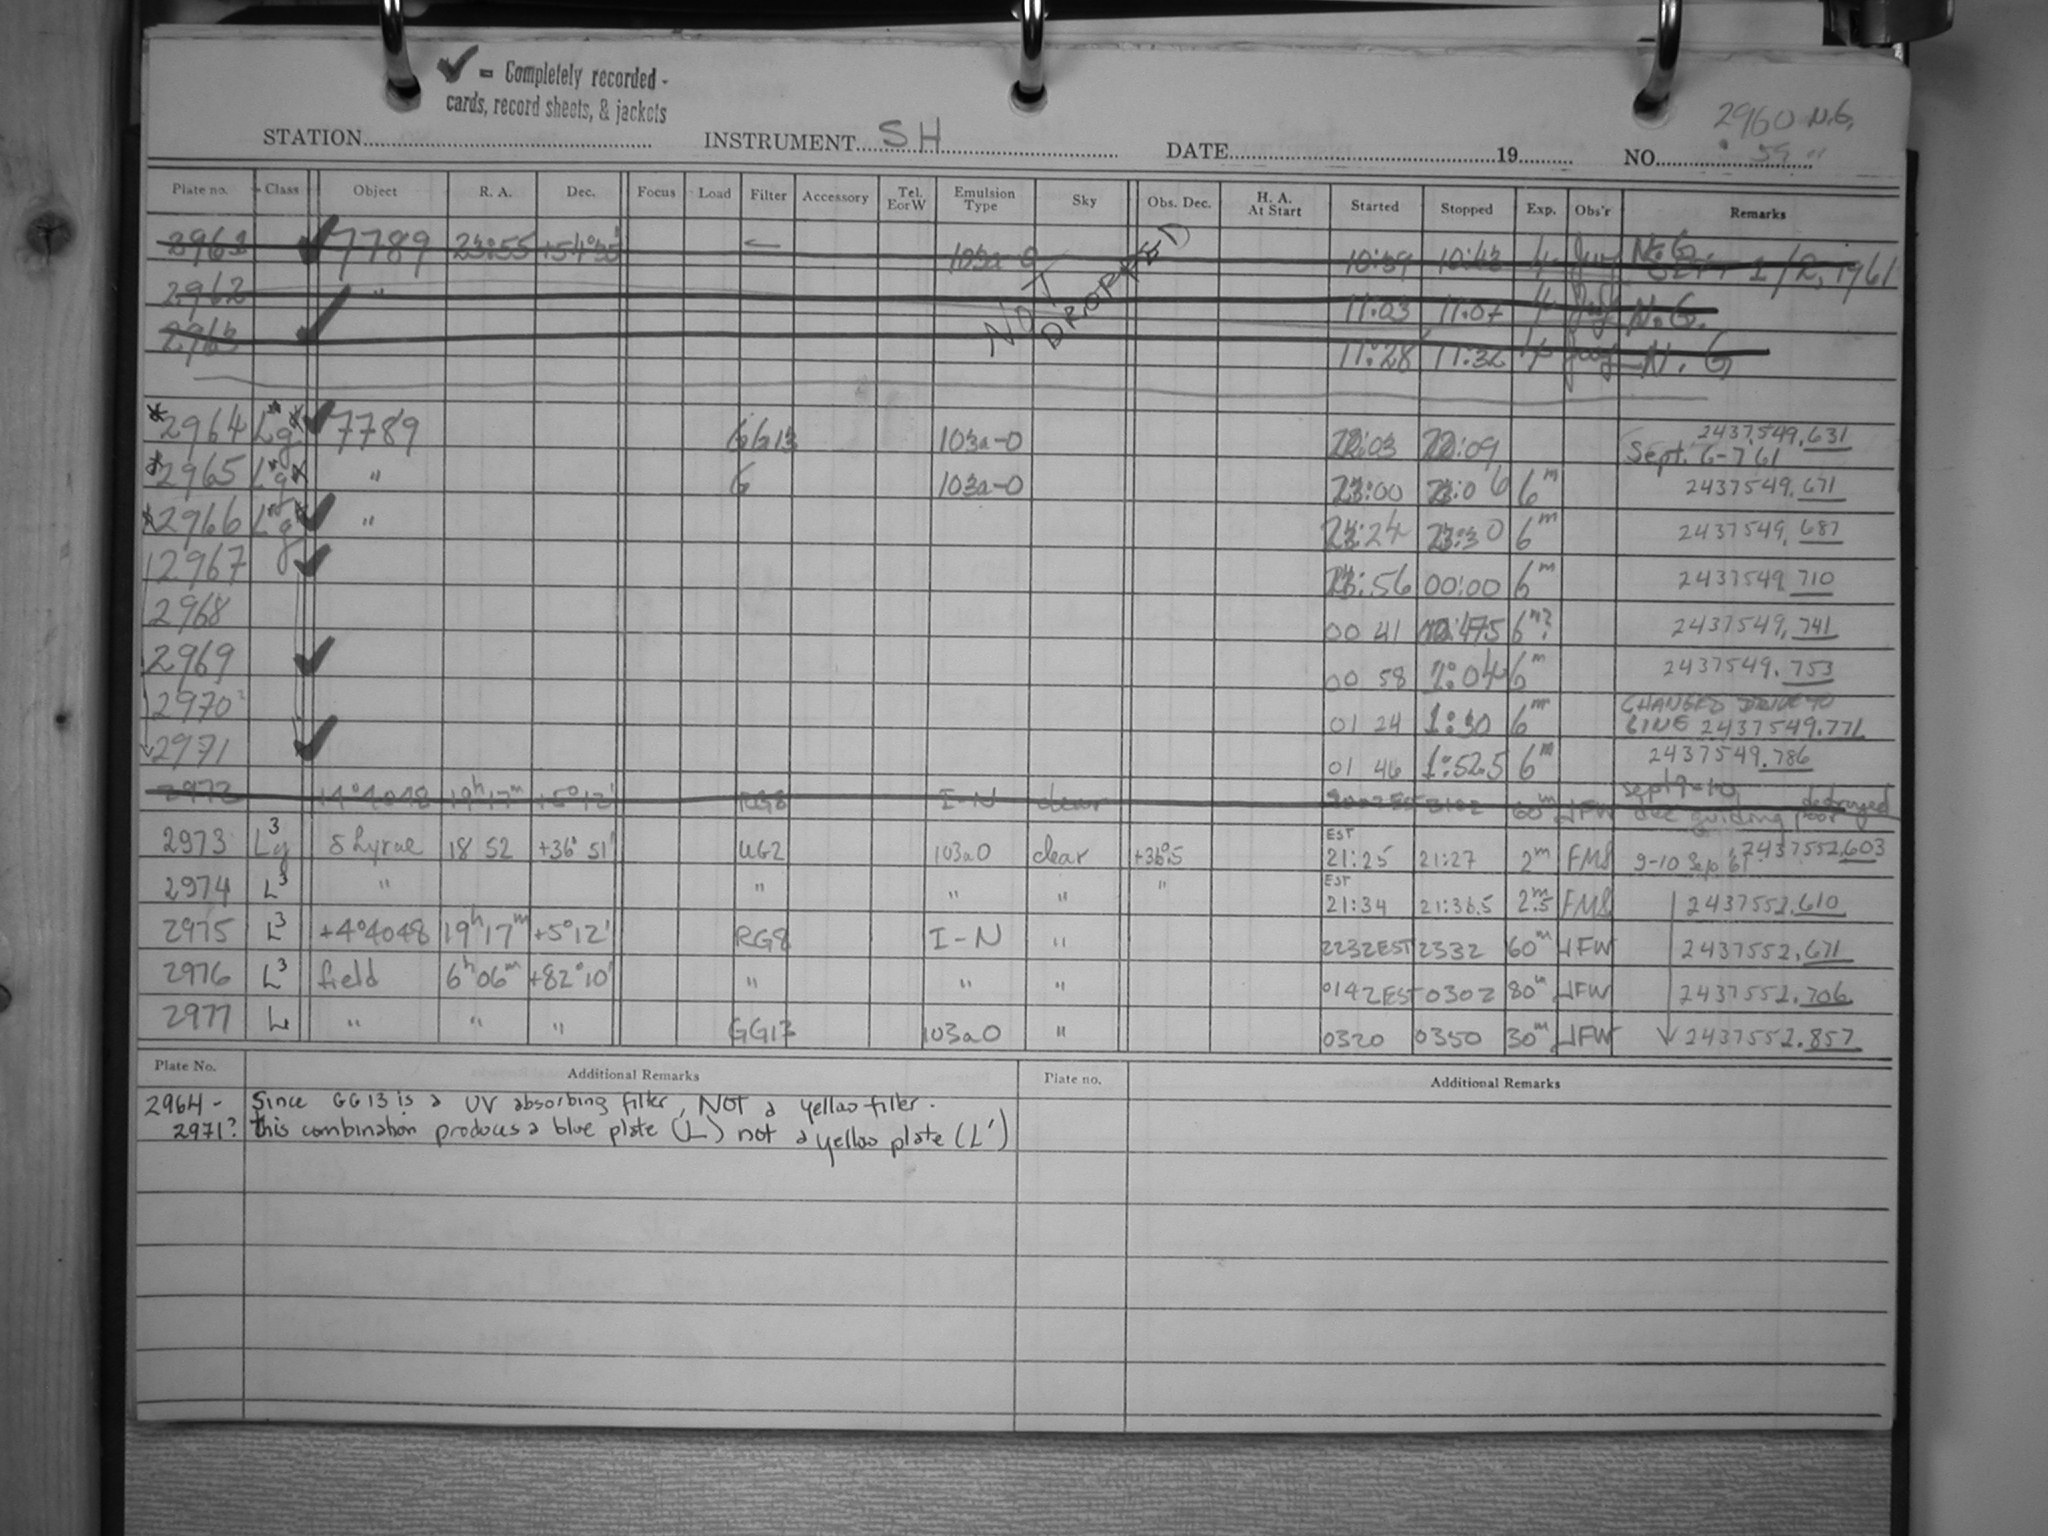 ✓ = Completely recorded -
cards, record sheets, & jackets
2960 N.G.
STATION INSTRUMENT SH DATE 19 NO. 59 "
Plate no. Class Object R. A. Dec. Focus Load Filter Accessory Tel. E or W Emulsion Type Sky Obs. Dec. H. A. At Start Started Stopped Exp. Obs'r Remarks
2961 ✓ 7789 23:55 +54°35' — 103a-O 10:39 10:43 4 N.G. 1/2, 1961
2962 " NOT DROPPED 11:03 11:07 4 N.G.
2963 ✓ 11:28 11:32 4 N.G
*2964 Lg* ✓ 7789 GG13 103a-O 22:03 22:09 2437,549.631
Sept. 6-7 61
*2965 Lg* " G 103a-O 23:00 23:06 6m 2437549.671
*2966 Lg* ✓ " 23:24 23:30 6m 2437549.687
2967 ✓ 23:56 00:00 6m 2437549.710
2968 00 41 00:475 6m? 2437549.741
2969 ✓ 00 58 1:04 6m 2437549.753
2970 01 24 1:30 6m CHANGED DRIVE TO
LINE 2437549.771
2971 ✓ 01 46 1:52.5 6m 2437549.786
2972 +4°4048 19h17m +5°12' RG8 I-N clear 60m JFW Sept 9-10 destroyed
guiding poor
2973 Lg3 δ Lyrae 18 52 +36° 51' UG2 103aO clear +36°.5 EST 21:25 21:27 2m FMS 9-10 Sep 61 2437552.603
2974 L3 " " " " " EST 21:34 21:36.5 2m.5 FMS 2437552.610
2975 L3 +4°4048 19h17m +5°12' RG8 I-N " 2232EST 2332 60m JFW 2437552.671
2976 L3 field 6h06m +82°10' " " " 0142EST 0302 80m JFW 2437552.706
2977 L " " " GG13 103aO " 0320 0350 30m JFW 2437552.857
Plate No. Additional Remarks Plate no. Additional Remarks
2964 - Since GG13 is a UV absorbing filter, NOT a yellow filter.
2971? this combination produces a blue plate (L) not a yellow plate (L')